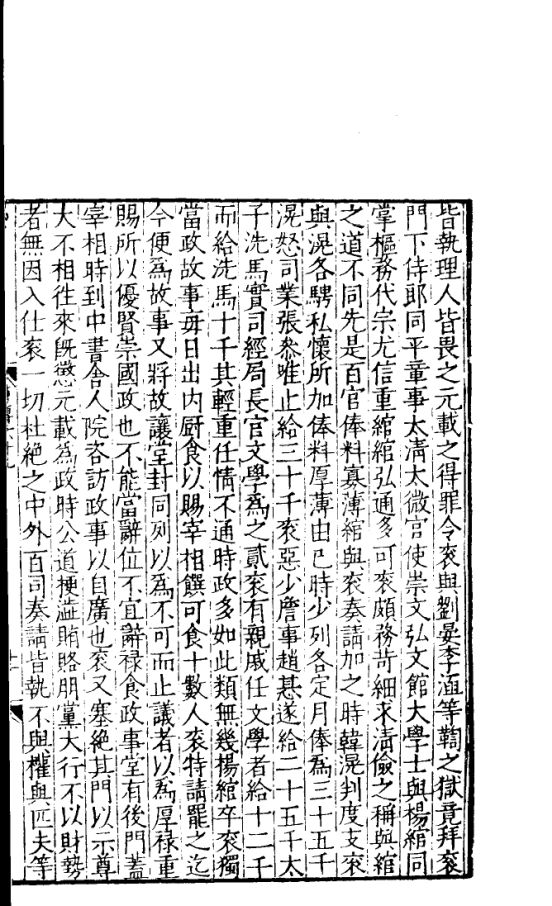 皆執理人皆畏之元載之得罪令衮與劉晏李涵等鞫之獄竟拜衮
門下侍郎同平章事太清太微宮使崇文弘文館大學士與楊綰同
掌樞務代宗尤信重綰綰弘通多可衮頗務苛細求清儉之稱與綰
之道不同先是百官俸料寡薄綰與衮奏請加之時韓滉判度支衮
與滉各騁私懷所加俸料厚薄由已時少列各定月俸爲三十五千
滉怒司業張參唯止給三十千衮惡少詹事趙惎遂給二十五千太
子洗馬實司經局長官文學爲之貳衮有親戚任文學者給十二千
而給洗馬十千其輕重任情不通時政多如此類無幾楊綰卒衮獨
當政故事每日出内厨食以賜宰相饌可食十數人衮特請罷之迄
今便爲故事又將故讓堂封同列以爲不可而止議者以爲厚禄重
賜所以優賢崇國政也不能當辭位不宜辭禄食政事堂有後門蓋
宰相時到中書舍人院咨訪政事以自廣也衮又塞絶其門以示尊
大不相徃來旣懲元載爲政時公道梗澁賄賂朋黨大行不以財勢
者無因入仕衮一切杜絶之中外百司奏請皆執不與權與匹夫等